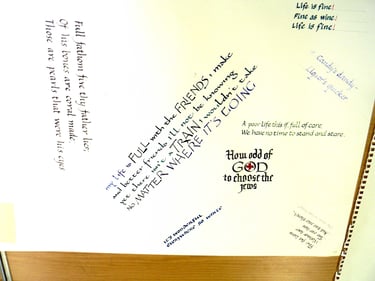 Full fathom five thy father lies,
Of his bones are coral made
Those are pearls that were his eyes
Life is fine!
Fine as wine!
Life is fine!
Candy's dandy
liquor's quicker
my life is FULL with the FRIENDS I make
and better friends I'll not be knowing
yet there isn't a TRAIN I wouldn't take
No MATTER WHERE IT'S GOING
A poor life this if, full of care
We have no time to stand and stare.
How odd of
GOD
to choose the
jews